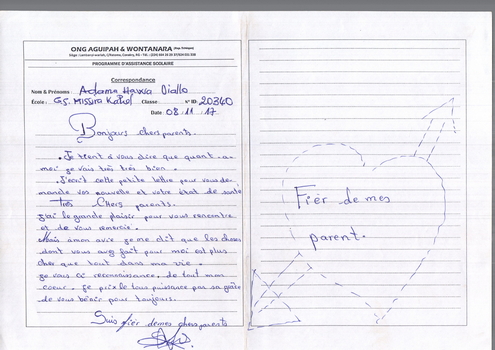 ONG AGUIPAH & WONTANARA (Rep. Guinée)
PROGRAMME D'ASSISTANCE SCOLAIRE
Correspondance
Nom & Prénoms : Adama Hawa Diallo
École : GS. MISSIRA Kabel Classe : N° ID: 20340
Date 08.11.17
Bonjours chers parents.
. Je tient à vous dire que quant-a-
moi je vais très très bien.
J'écrit cette petite lettre pour vous de-
mande vos nouvelle et votre état de santé
très Chers parents.
J'ai le grande plaisir pour vous rencontre
et de vous remercis.
Mais àmon avie je me dit que les choses
dont vous avez fait pour moi est plus
cher que tout dans ma vie.
Je vous ai reconnaissance, de tout mon
coeur. Je prix le tous puissance par sa grâce
de vous bénir pour toujours.
Suis fièr demes chers parents
Fièr de mes
parent.